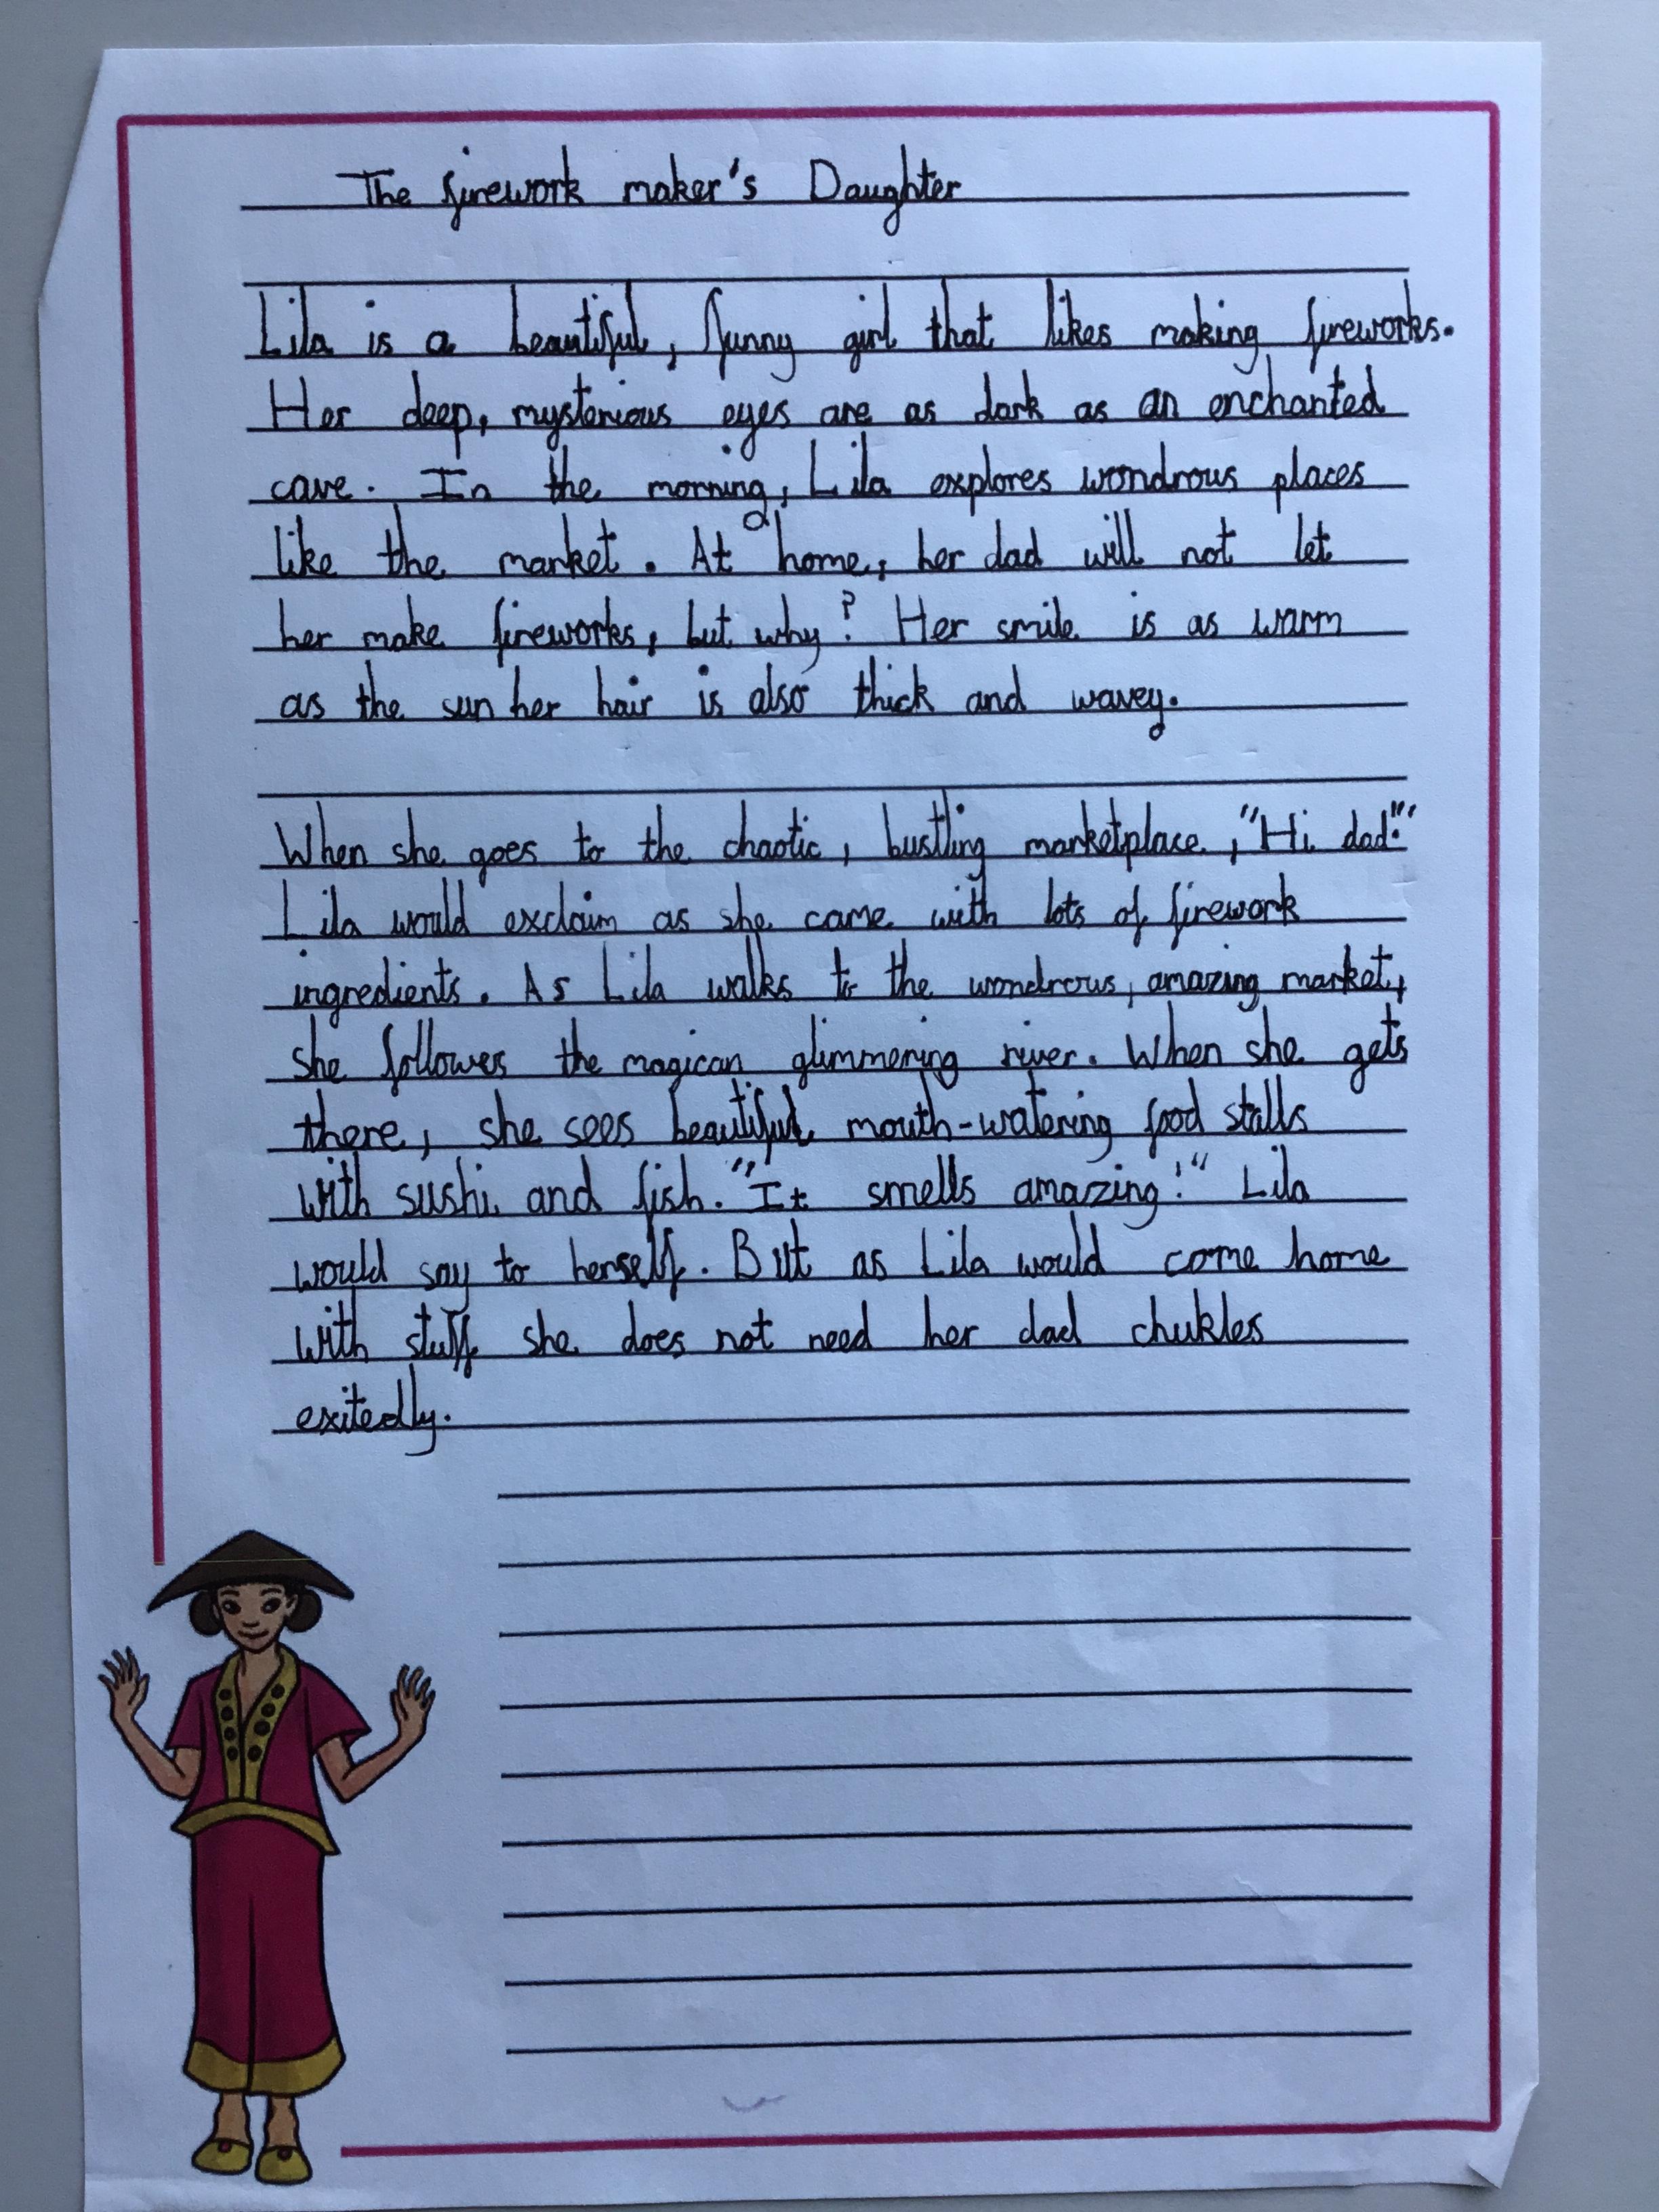 The firework maker's Daughter
Lila is a beautiful, funny girl that likes making fireworks.
Her deep, mysterious eyes are as dark as an enchanted
cave. In the morning, Lila explores wondrous places
like the market. At home, her dad will not let
her make fireworks, but why? Her smile is as warm
as the sun her hair is also thick and wavey.
When she goes to the chaotic, bustling marketplace, "Hi dad!"
Lila would exclaim as she came with lots of firework
ingredients. As Lila walks to the wondrous, amazing market,
she followes the magican glimmering river. When she gets
there, she sees beautiful mouth-watering food stalls
with sushi and fish. "It smells amazing!" Lila
would say to herself. But as Lila would come home
with stuff she does not need her dad chukles
exitedly.